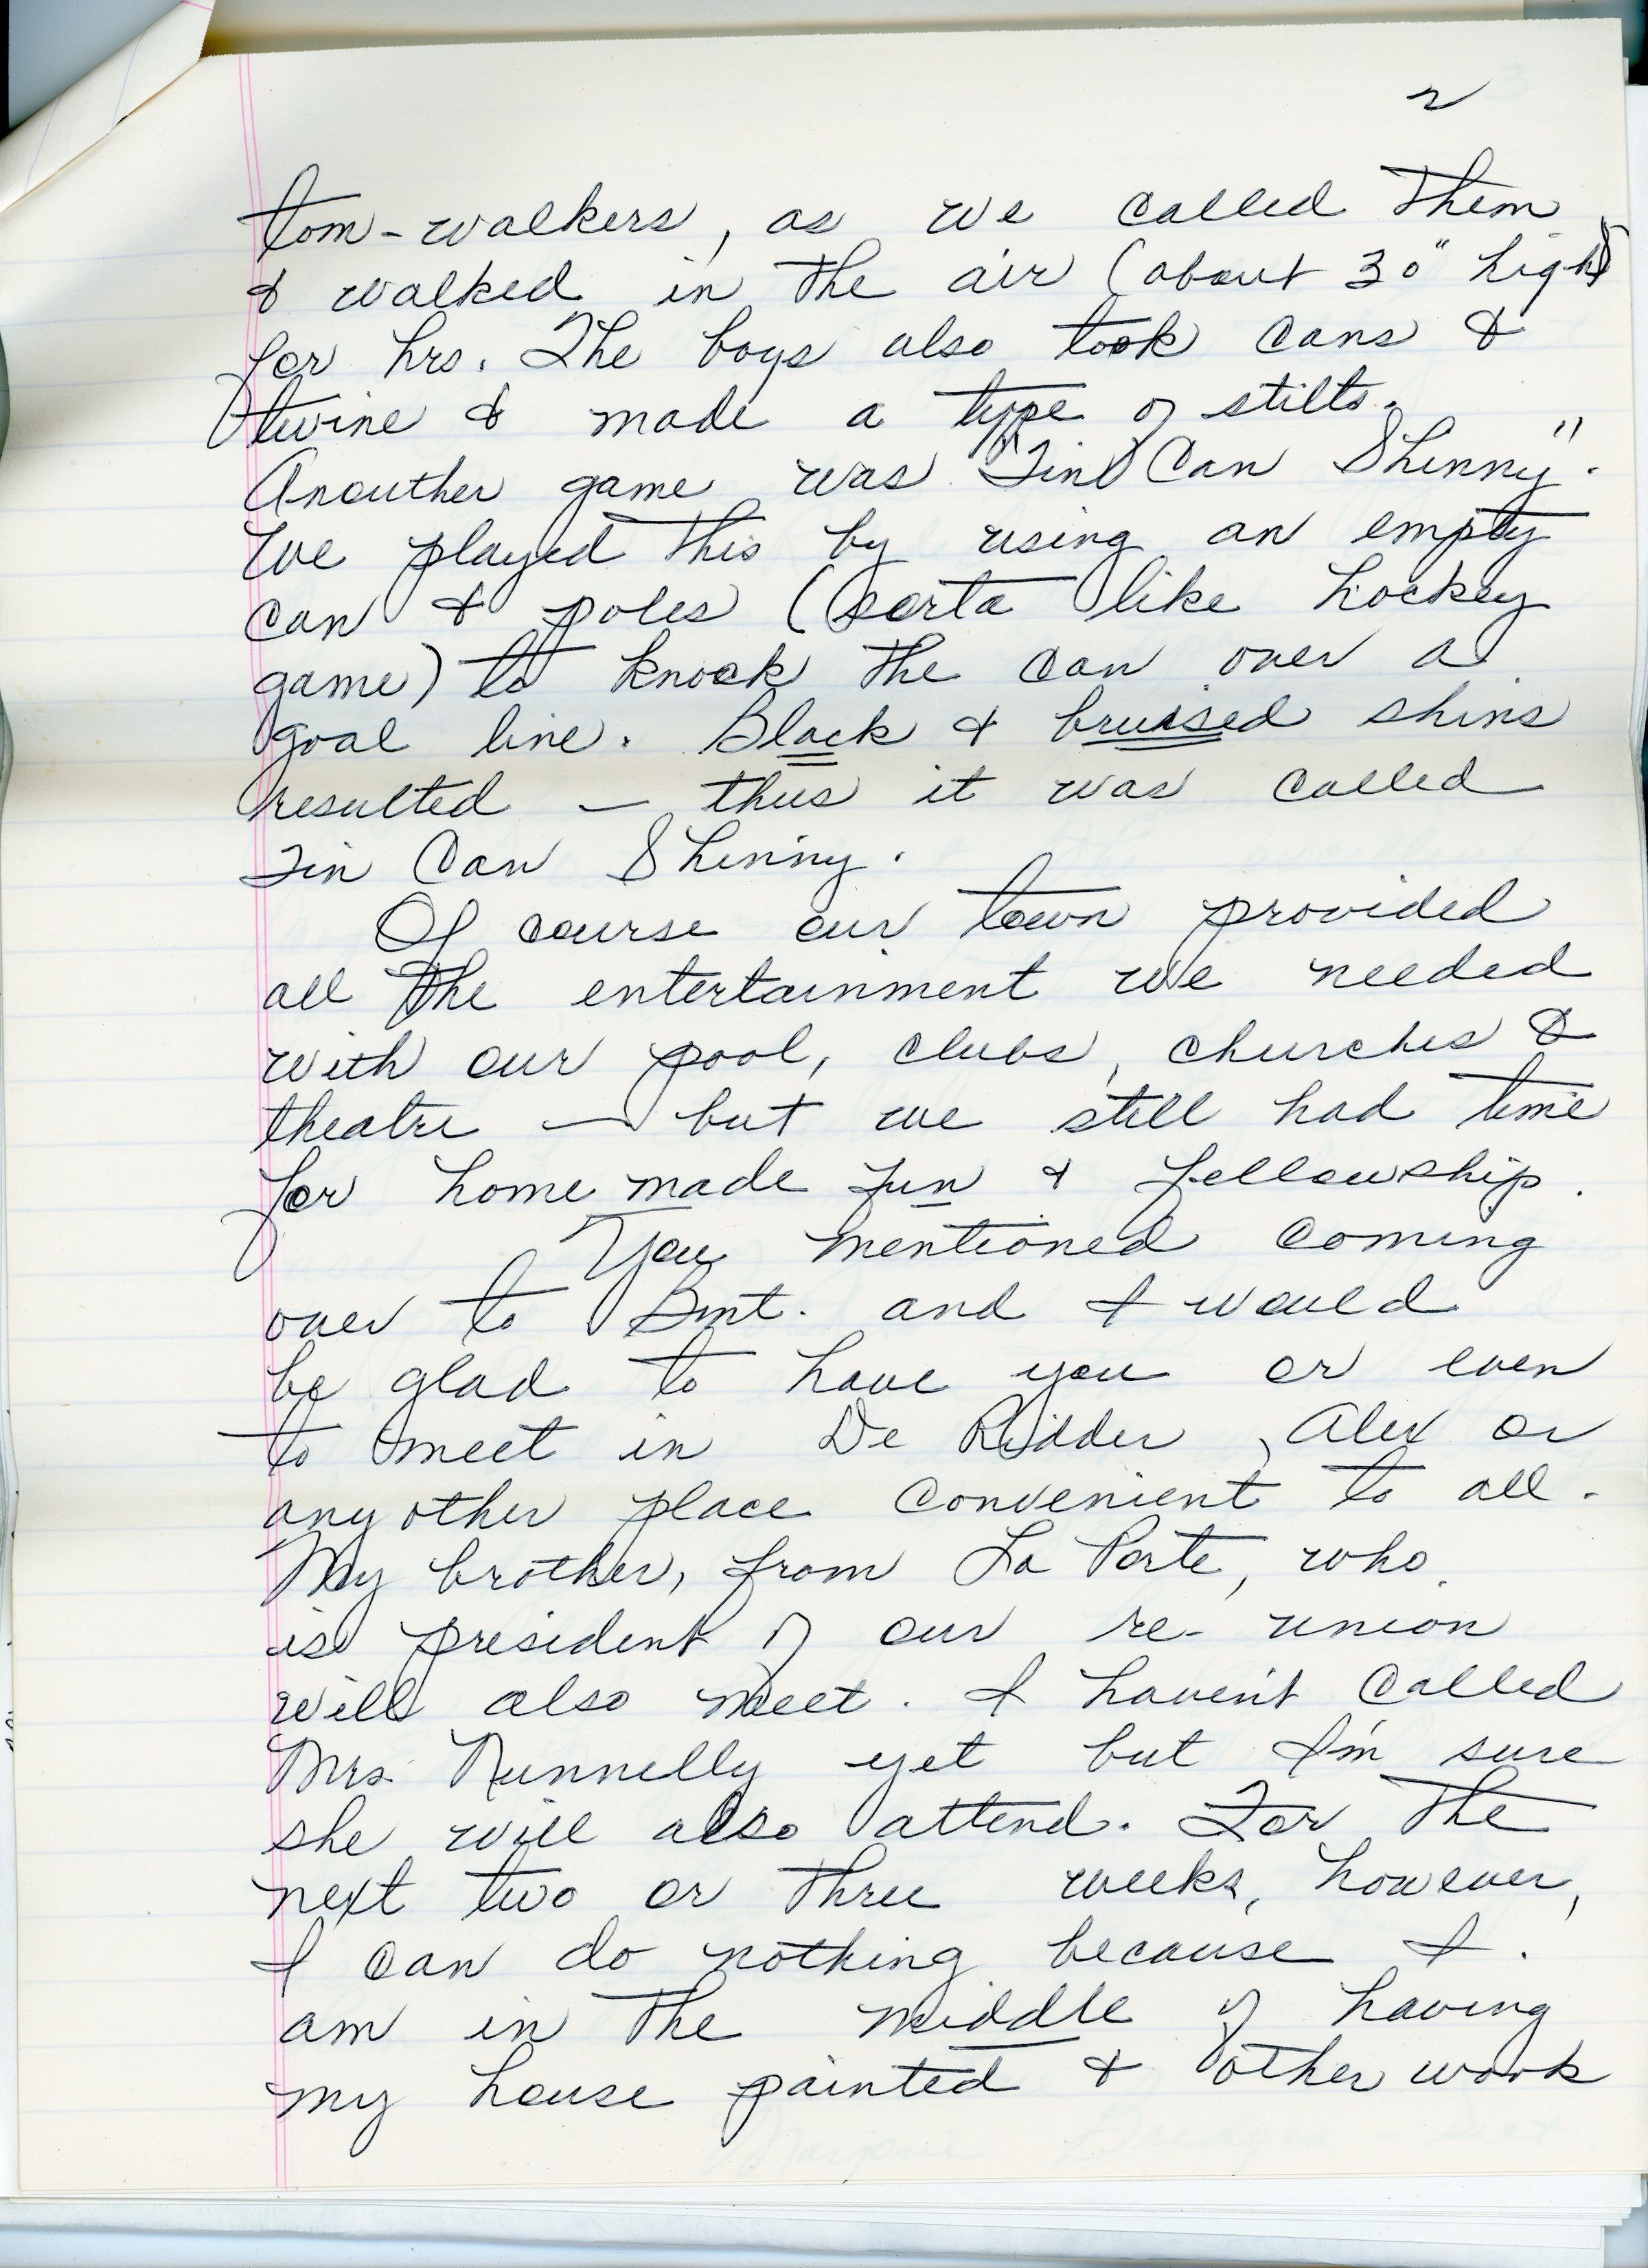 2
tom-walkers, as we called them
& walked in the air (about 30" high)
for hrs. The boys also took cans &
twine & made a type of stilts.
Anouther game was "Tin Can Shinny".
We played this by using an empty
can & poles (sorta like hockey
game) to knock the can over a
goal line. Black & bruised shins
resulted — thus it was called
Tin Can Shinny.
Of course our town provided
all the entertainment we needed
with our pool, clubs, churches &
theatre — but we still had time
for home made fun & fellowship.
You mentioned coming
over to Bmt. and I would
be glad to have you or even
to meet in De Ridder, Alex or
any other place convenient to all.
My brother, from La Porte, who
is president of our re-union
will also meet. I haven't called
Mrs. Nunnelly yet but I'm sure
she will also attend. For the
next two or three weeks, however,
I can do nothing because I
am in the middle of having
my house painted & other work